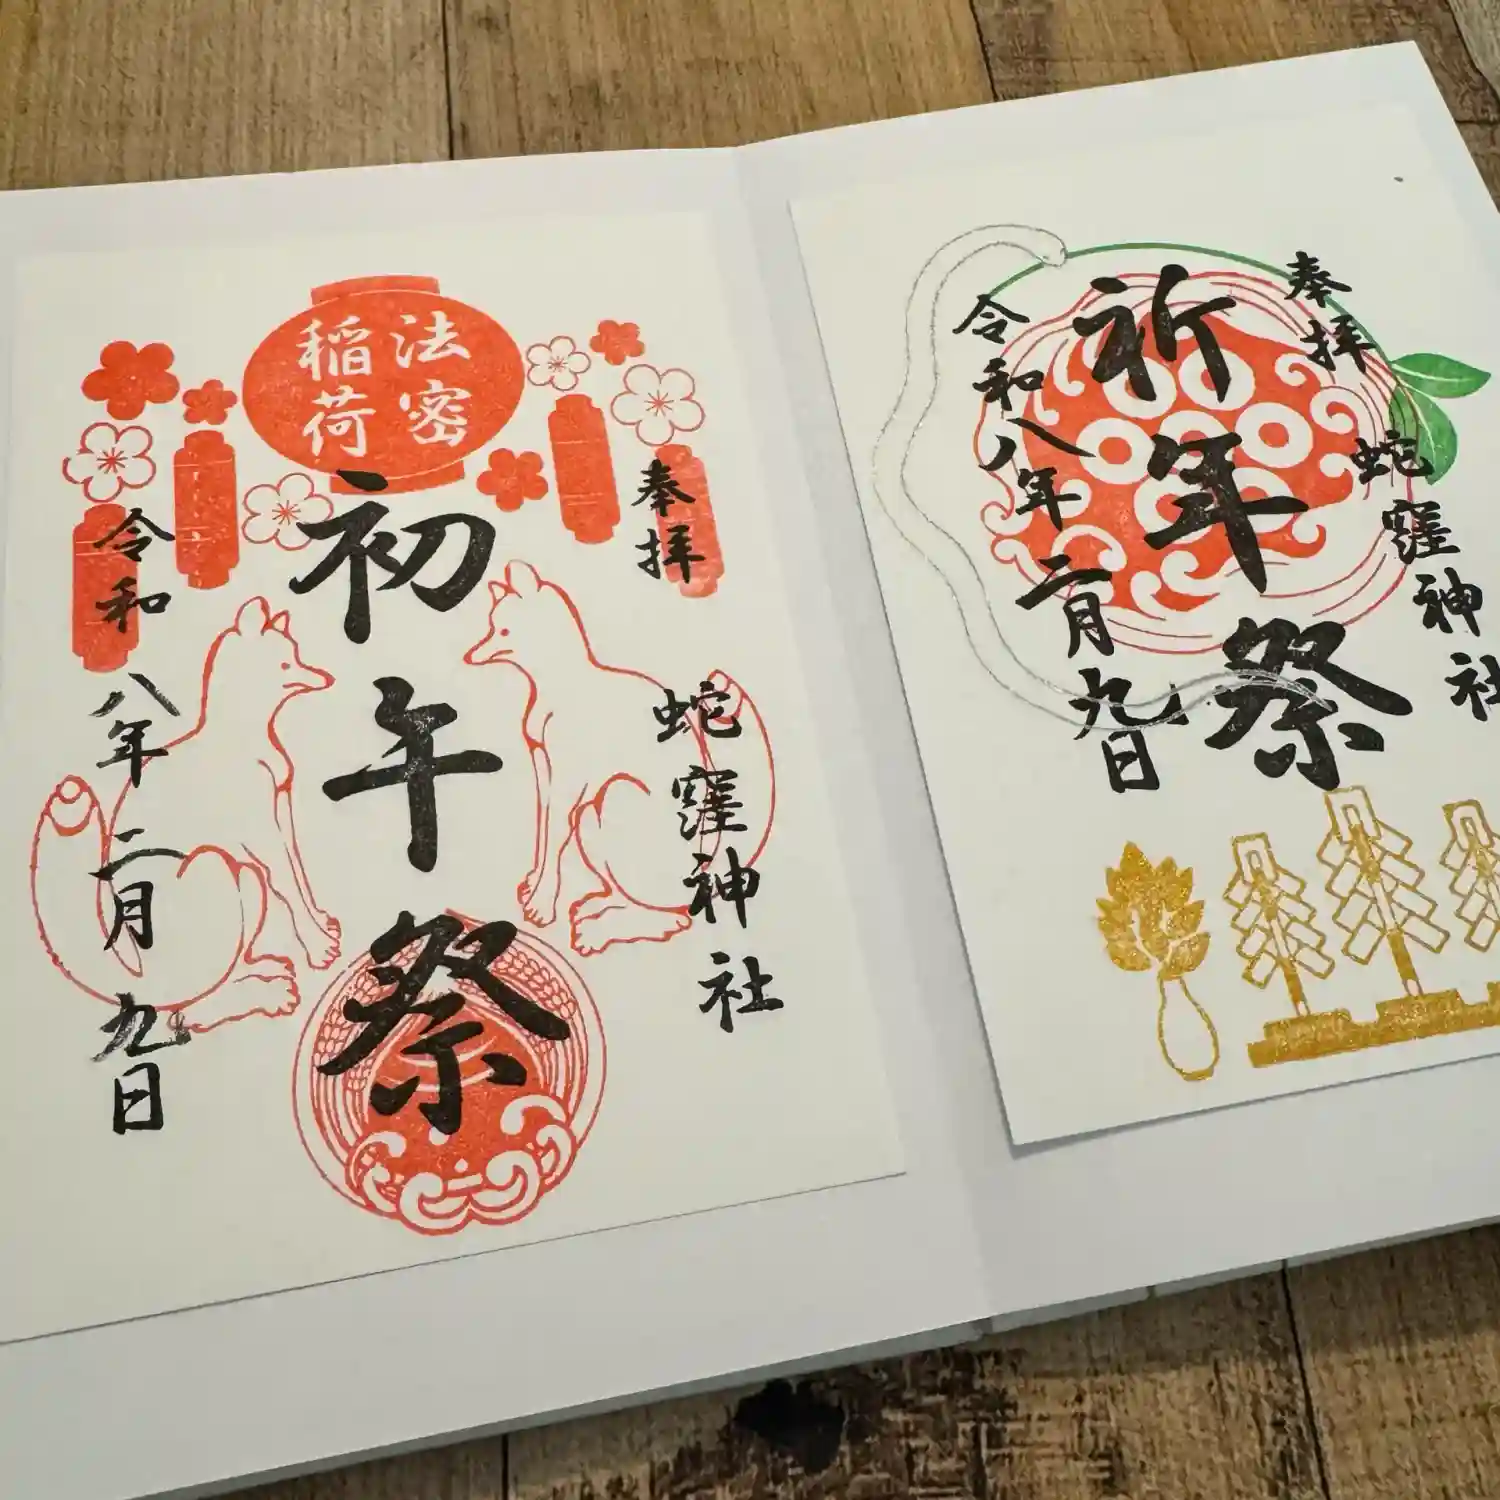 奉拝
蛇窪神社
祈年祭
令和八年二月九日
奉拝
蛇窪神社
法密
稲荷
初午祭
令和八年二月九日